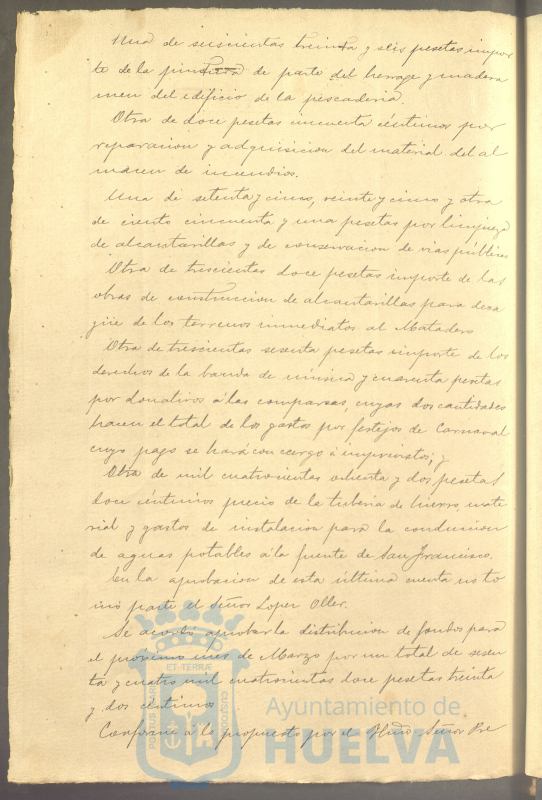 Una de seiscientas treinta y seis pesetas impor
te de la pintura de parte del herrage y madera
men del edificio de la pescaderia.
Otra de doce pesetas cincuenta céntimos por
reparacion y adquisicion del material del al
macen de incendios.
Una de setenta y cinco, veinte y cinco y otra
de ciento cincuenta y una pesetas por limpieza
de alcantarillas y de conservacion de vias públicas
Otra de trescientas doce pesetas importe de las
obras de construccion de alcantarillas para desa
güe de los terrenos inmediatos al Matadero
Otra de trescientas sesenta pesetas importe de los
derechos de la banda de música y cuarenta pesetas
por donativos á las comparsas, cuyas dos cantidades
hacen el total de los gastos por festejos de Carnaval
cuyo pago se hará con cargo á imprevistos; y
Otra de mil cuatrocientas ochenta y dos pesetas
doce céntimos precio de la tuberia de hierro, mate
rial y gastos de instalacion para la conduccion
de aguas potables á la fuente de San Francisco.
En la aprobacion de esta última cuenta no to
mó parte el Señor Lopez Oller.
Se acordó aprobar la distribucion de fondos para
el proximo mes de Marzo por un total de sesen
ta y cuatro mil cuatrocientas doce pesetas treinta
y dos céntimos
Conforme á lo propuesto por el Iltmo. Señor Pre
PORTUS MARIS ET TERRÆ CUSTODIA
Ayuntamiento de
HUELVA